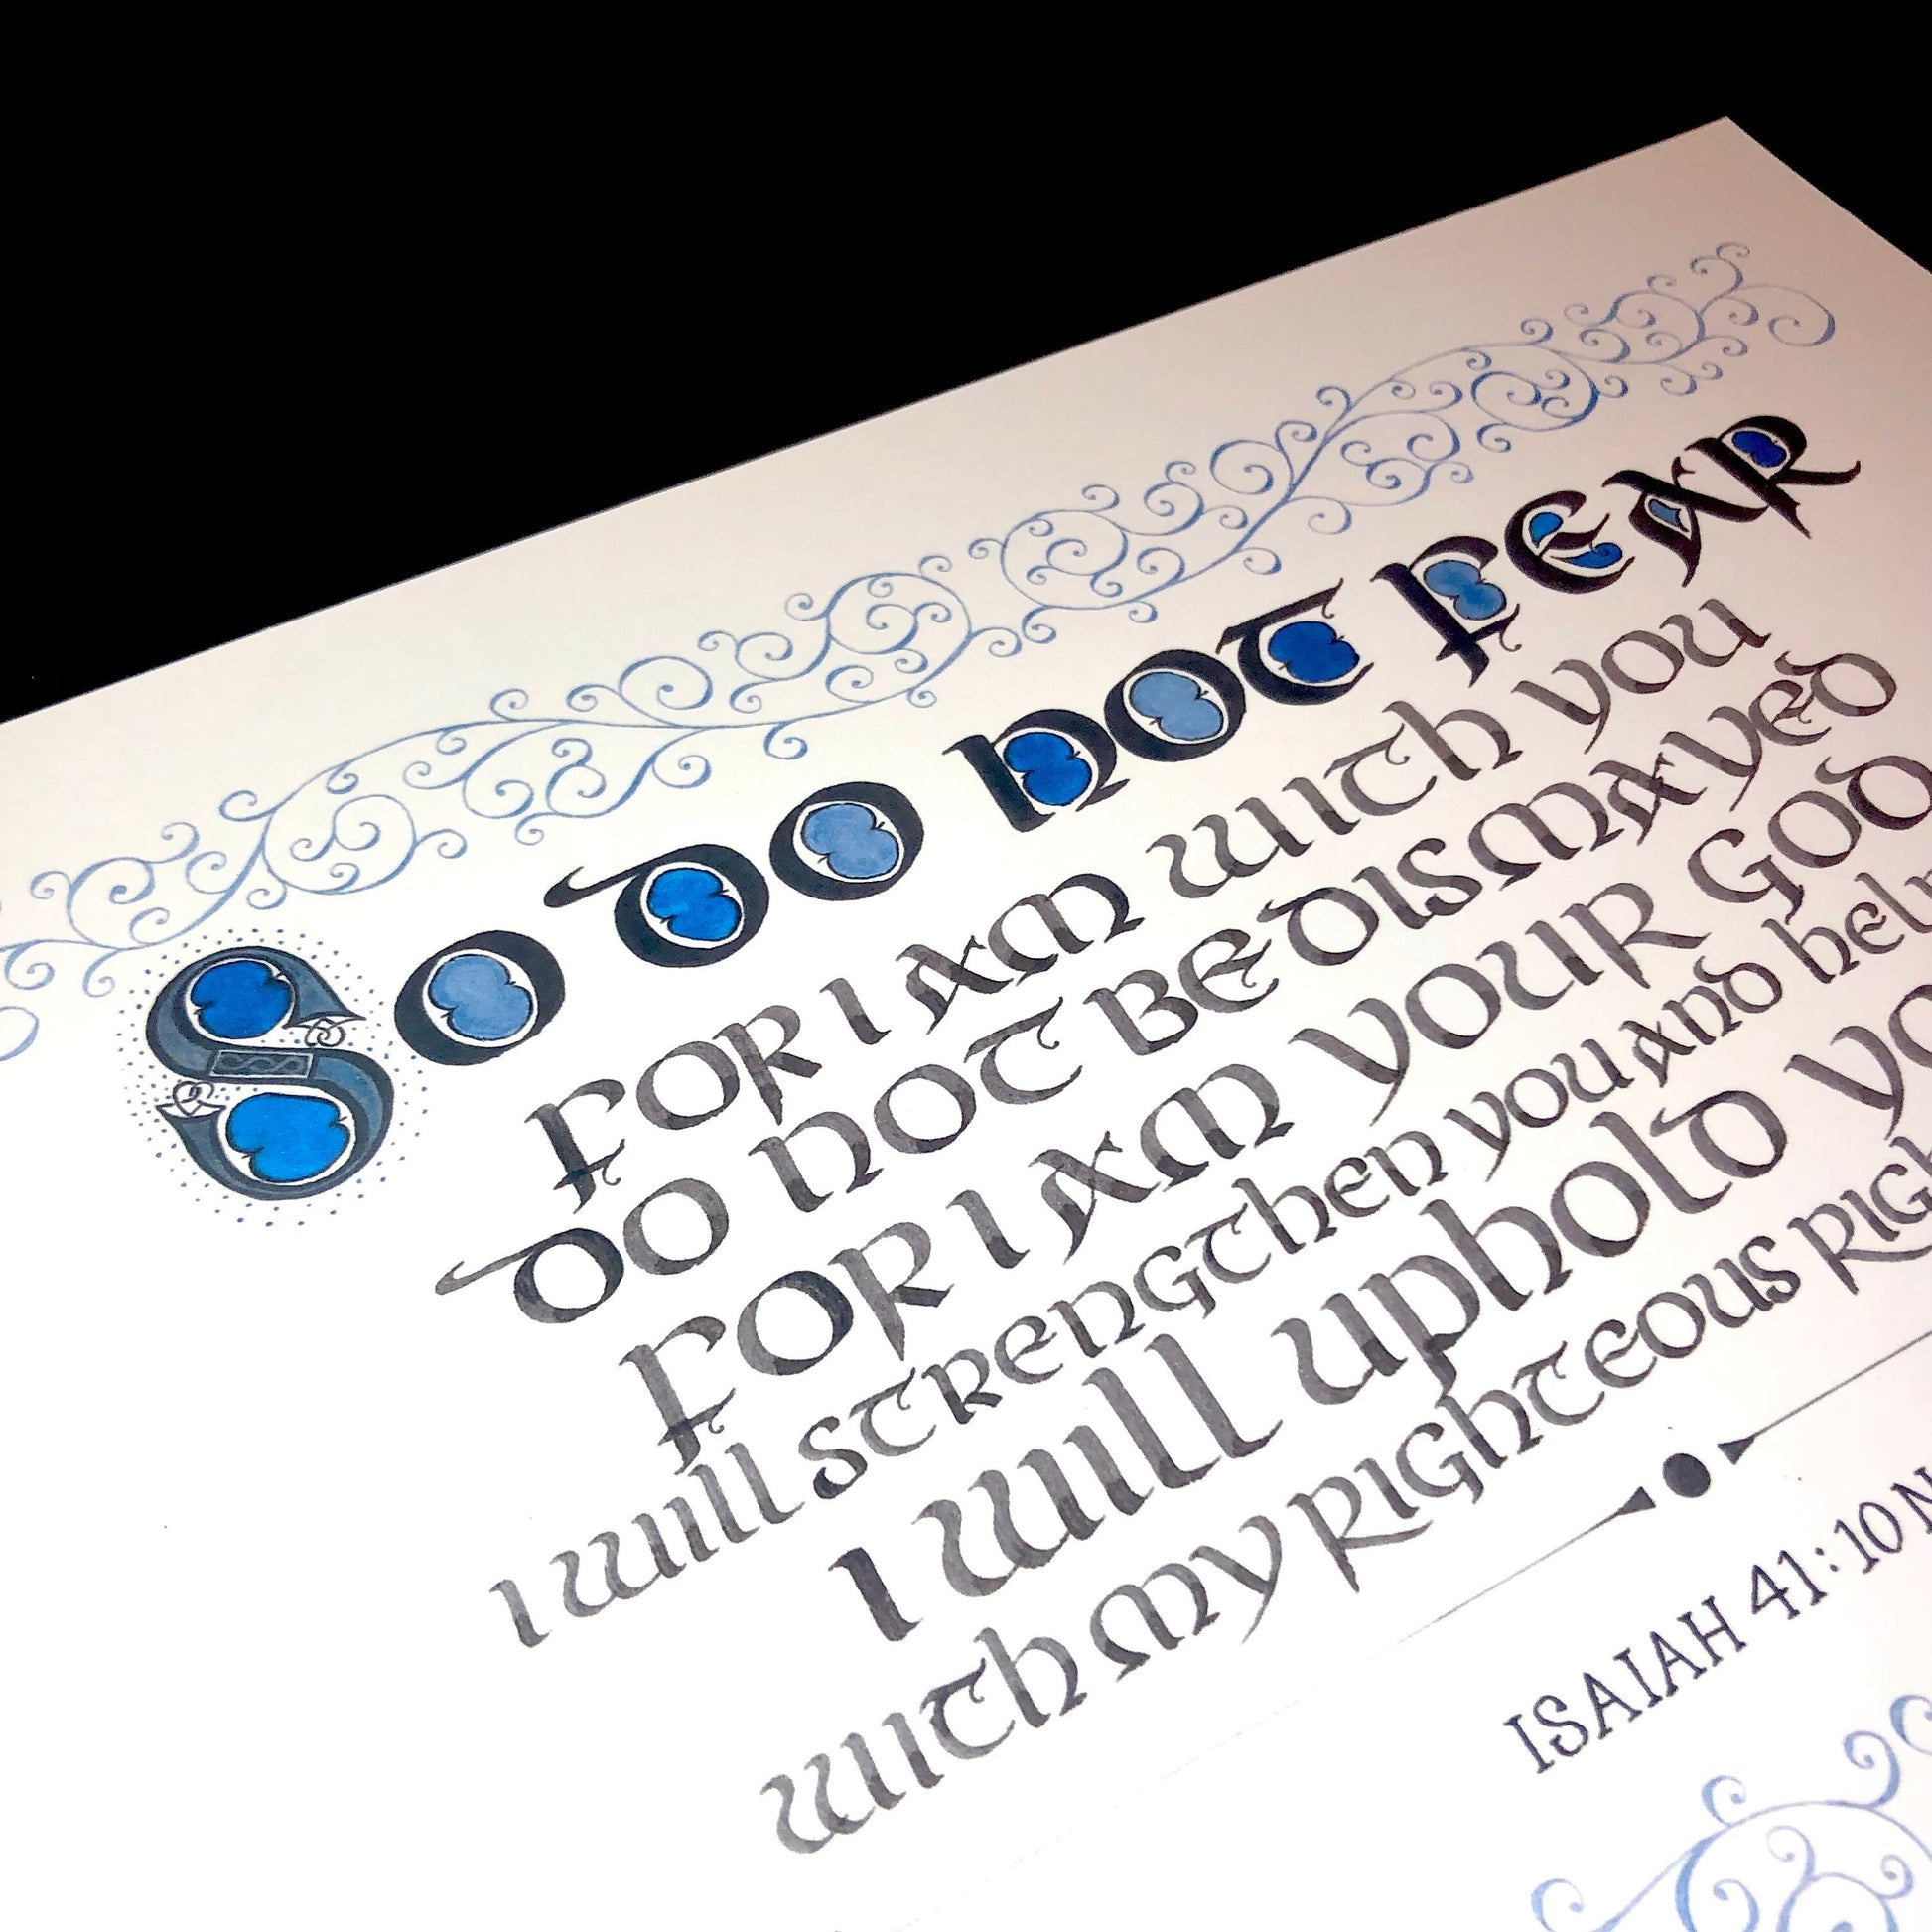 So do not fear
for I am with you
do not be dismayed
for I am your God
I will strengthen you and help
I will uphold
with my righteous
ISAIAH 41:10